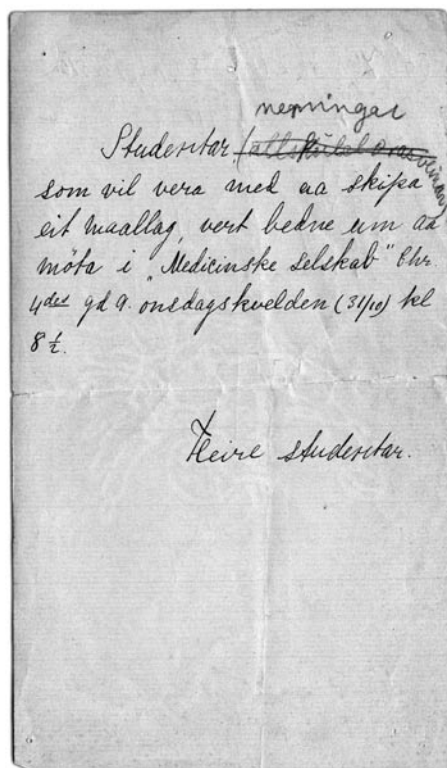 Studentar
som vil vera med aa skipa
eit maallag, vert bedne um aa
möta i "Medicinske selskab" Chr.
4des gd 9. onsdagskvelden (31/10) kl
8 ½.
Fleire studentar.